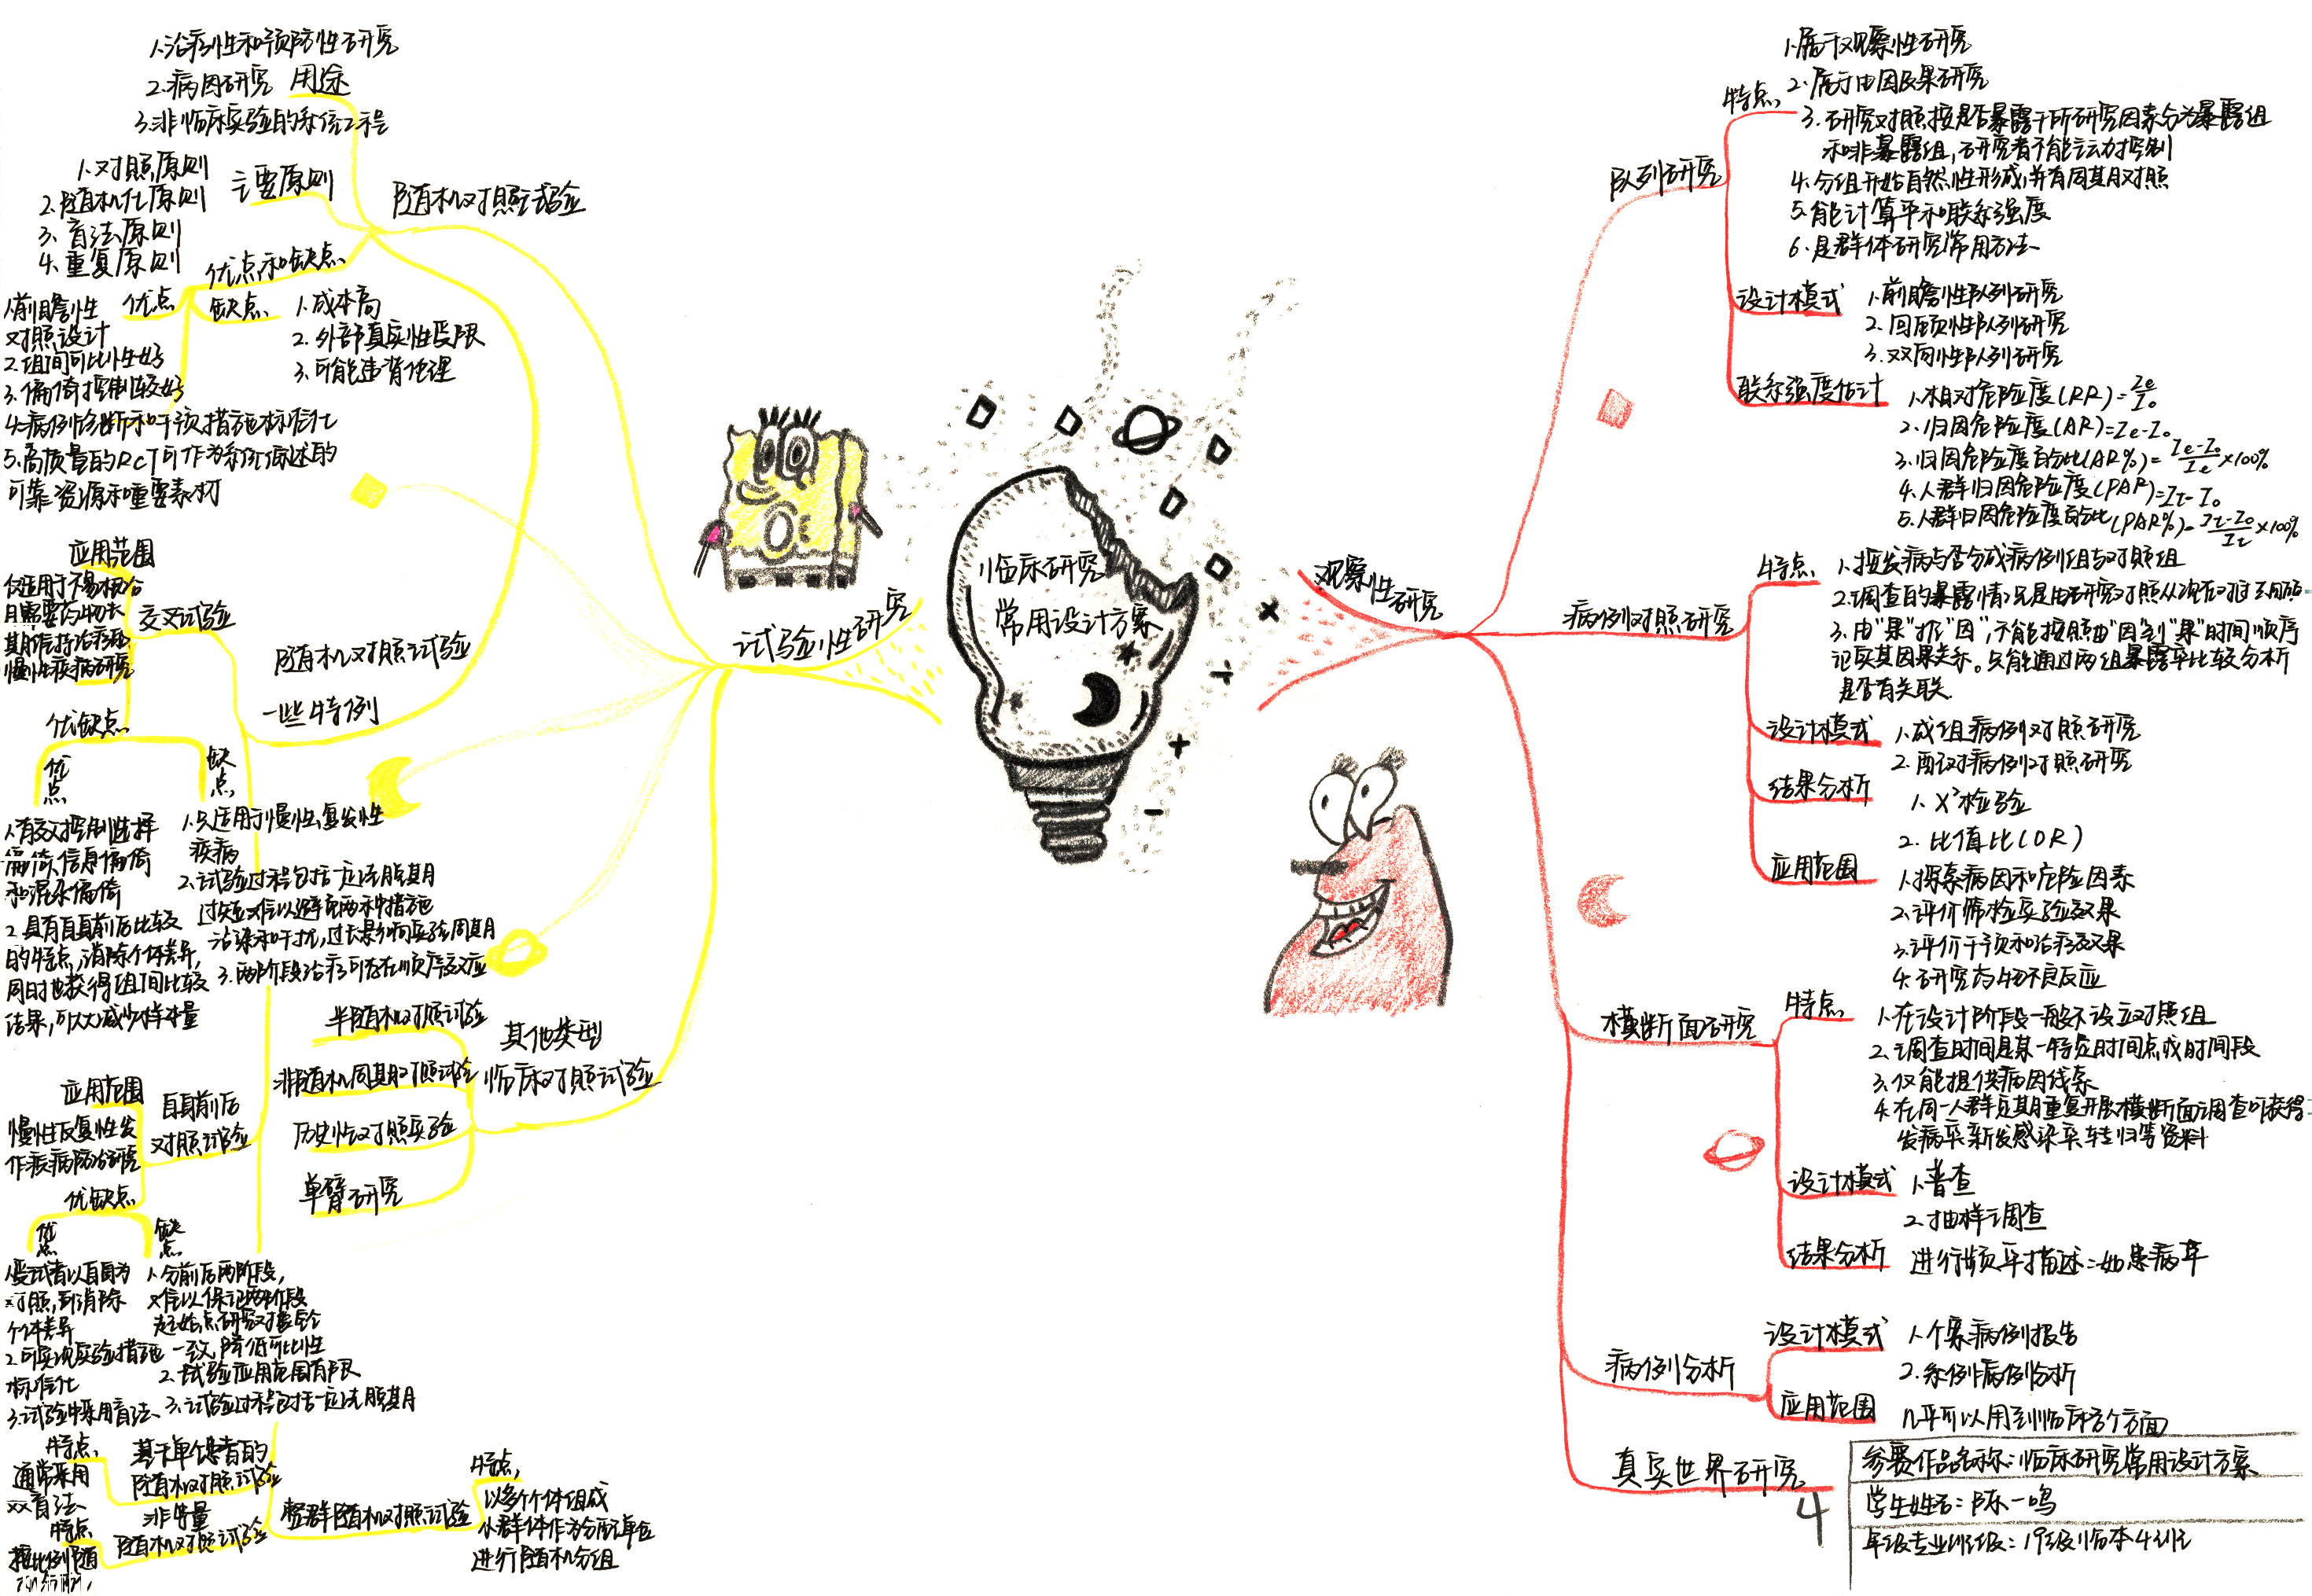 临床研究
常用设计方案
试验性研究
随机对照试验
用途
1.治疗性和预防性研究
2.病因研究
3.非临床实验的系统工程
主要原则
1.对照原则
2.随机化原则
3.盲法原则
4.重复原则
优点和缺点
优点
1.前瞻性
对照设计
2.组间可比性好
3.偏倚控制较好
4.病例诊断和干预措施标准化
5.高质量的RCT可作为系统综述的
可靠资源和重要素材
缺点
1.成本高
2.外部真实性受限
3.可能违背伦理
随机对照试验
一些特例
交叉试验
应用范围
期维持治疗的
慢性疾病研究
优缺点
优点
1.有效控制选择
偏倚、信息偏倚
和混杂偏倚
2.具有自身前后比较
的特点,消除个体差异,
同时也获得组间比较
结果,可大大减少样本量
缺点
1.只适用于慢性、复发性
疾病
2.试验过程包括一定洗脱期
过短难以避免两种措施
沾染和干扰,过长影响实验周期
3.两阶段治疗可存在顺序效应
自身前后
对照试验
应用范围
慢性反复性发
作疾病防治研究
优缺点
优点
1.受试者以自身为
对照,可消除
个体差异
2.可实现实验措施
标准化
3.试验中采用盲法
缺点
1.分前后两阶段,
难以保证两阶段
起始点研究对象完全
一致,降低可比性
2.试验应用范围有限
3.试验过程包括一定洗脱期
基于单个患者的
随机对照试验
特点
通常采用
双盲法
非等量
随机对照试验
特点
按比例随
整群随机对照试验
特点
以多个个体组成
从群体作为分配单位
进行随机分组
其他类型
临床对照试验
半随机对照试验
非随机同期对照试验
历史性对照实验
单臂研究
观察性研究
队列研究
特点
1.属于观察性研究
2.属于由因及果研究
3.研究对照按是否暴露于所研究因素分为暴露组
和非暴露组,研究者不能主动控制
4.分组开始自然性形成,并有同期对照
5.能计算率和联系强度
6.是群体研究常用方法
设计模式
1.前瞻性队列研究
2.回顾性队列研究
3.双向性队列研究
联系强度估计
1.相对危险度(RR)=Ie/I0
2.归因危险度(AR)=Ie-I0
3.归因危险度百分比(AR%)=Ie-I0/Ie×100%
4.人群归因危险度(PAR)=It-I0
5.人群归因危险度百分比(PAR%)=It-I0/It×100%
病例对照研究
特点
1.按发病与否分成病例组与对照组
3.由“果”推“因”,不能按照由“因”到“果”时间顺序
证实其因果关系。只能通过两组暴露率比较分析
是否有关联
设计模式
1.成组病例对照研究
2.配对病例对照研究
结果分析
1.X²检验
2.比值比(OR)
应用范围
1.探索病因和危险因素
2.评价筛检实验效果
3.评价干预和治疗效果
4.研究药物不良反应
横断面研究
特点
1.在设计阶段一般不设立对照组
2.调查时间是某一特定时间点或时间段
3.仅能提供病因线索
4.在同一人群定期重复开展横断面调查可获得
发病率新发感染率转归等资料
设计模式
1.普查
2.抽样调查
结果分析
进行频率描述:如患病率
病例分析
设计模式
1.个案病例报告
2.系列病例分析
应用范围
几乎可以用到临床各个方面
真实世界研究
4
参赛作品名称:临床研究常用设计方案
学生姓名:陈一鸣
年级专业班级:19级临本4班